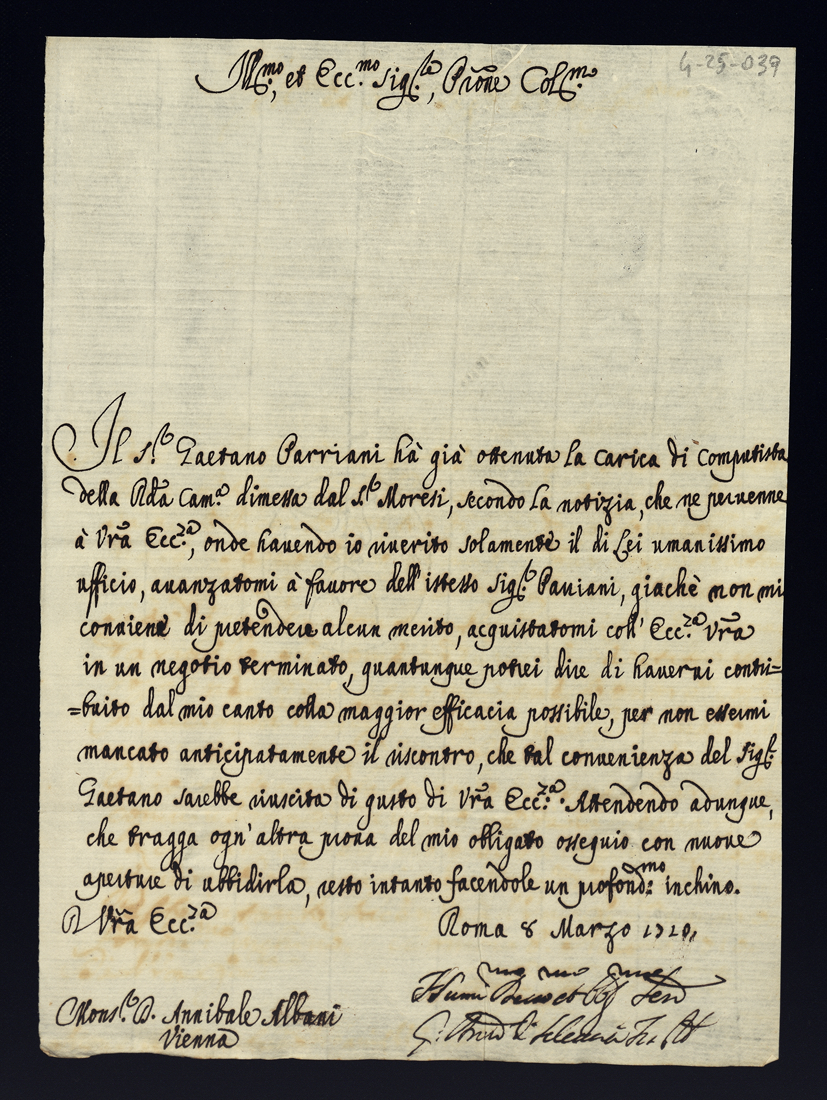 Ill.mo, et Ecc.mo Sig.re, Prone Col.mo
4-25-039
Il S.re Gaetano Parriani hà già ottenuta la carica di Computista
della Rda Cam.a dimessa dal S.re Moresi, secondo la notizia, che ne peruenne
à Vrã Ecc.za, onde hauendo io riuerito solamente il di Lei umanissimo
ufficio, auanzatomi à fauore dell'istesso Sig.re Pauiani, giachè non mi
conuiene di pretendere alcun merito, acquistatomi coll'Ecc.za Vrã
in un negotio terminato, quantunque potrei dire di hauerui contri=
=buito dal mio canto colla maggior efficacia possibile, per non essermi
mancato anticipatamente il riscontro, che tal conuenienza del Sig.r
Gaetano sarebbe riuscita di gusto di Vrã Ecc.za. Attendendo adunque,
che tragga ogn'altra proua del mio obligato ossequio con nuoue
aperture di ubbidirla, resto intanto facendole un profond.mo inchino.
D Vrã Ecc.za
Roma 8 Marzo 1710,
Mons.re D. Annibale Albani
Vienna